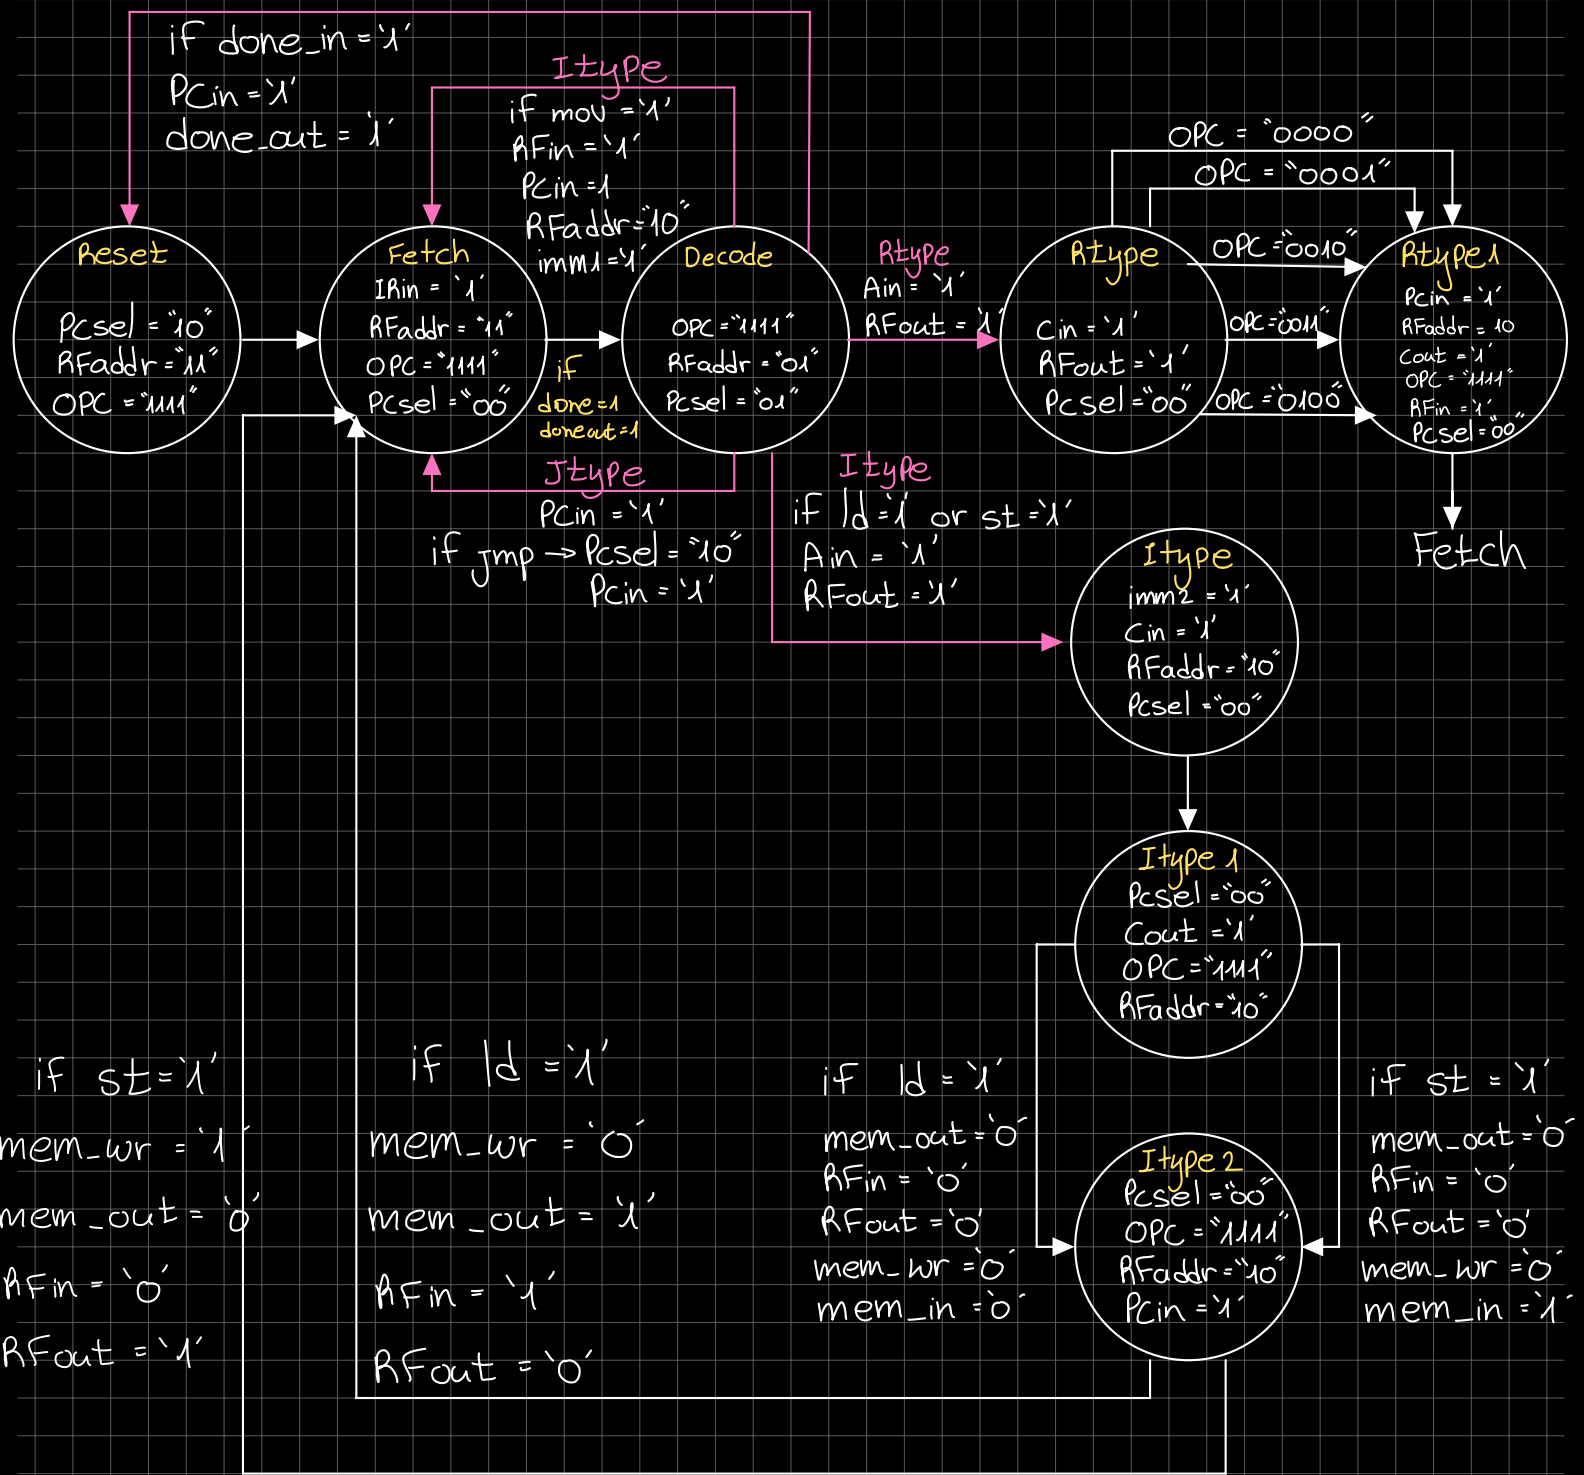 if done_in = '1'
PCin = '1'
done_out = '1'
Itype
if mov = '1'
RFin = '1'
PCin = 1
RFaddr = "10"
imm1 = '1'
OPC = "0000"
OPC = "0001"
Reset
PCsel = "10"
RFaddr = "11"
OPC = "1111"
Fetch
IRin = '1'
RFaddr = "11"
OPC = "1111"
PCsel = "00"
if
done = 1
doneout = 1
Decode
OPC = "1111"
RFaddr = "01"
PCsel = "01"
Rtype
Ain = '1'
RFout = '1'
Rtype
Cin = '1'
RFout = '1'
PCsel = "00"
OPC = "0010"
OPC = "0011"
OPC = "0100"
Rtype1
PCin = '1'
RFaddr = 10
Cout = '1'
OPC = "1111"
RFin = '1'
PCsel = "00"
Fetch
Jtype
PCin = '1'
if jmp → PCsel = "10"
PCin = '1'
Itype
if ld = '1' or st = '1'
Ain = '1'
RFout = '1'
Itype
imm2 = '1'
Cin = '1'
RFaddr = "10"
PCsel = "00"
Itype 1
PCsel = "00"
Cout = '1'
OPC = "1111"
RFaddr = "10"
if st = '1'
mem_wr = '1'
mem_out = '0'
RFin = '0'
RFout = '1'
if ld = '1'
mem_wr = '0'
mem_out = '1'
RFin = '1'
RFout = '0'
if ld = '1'
mem_out = '0'
RFin = '0'
RFout = '0'
mem_wr = '0'
mem_in = '0'
Itype 2
PCsel = "00"
OPC = "1111"
RFaddr = "10"
PCin = '1'
if st = '1'
mem_out = '0'
RFin = '0'
RFout = '0'
mem_wr = '0'
mem_in = '1'